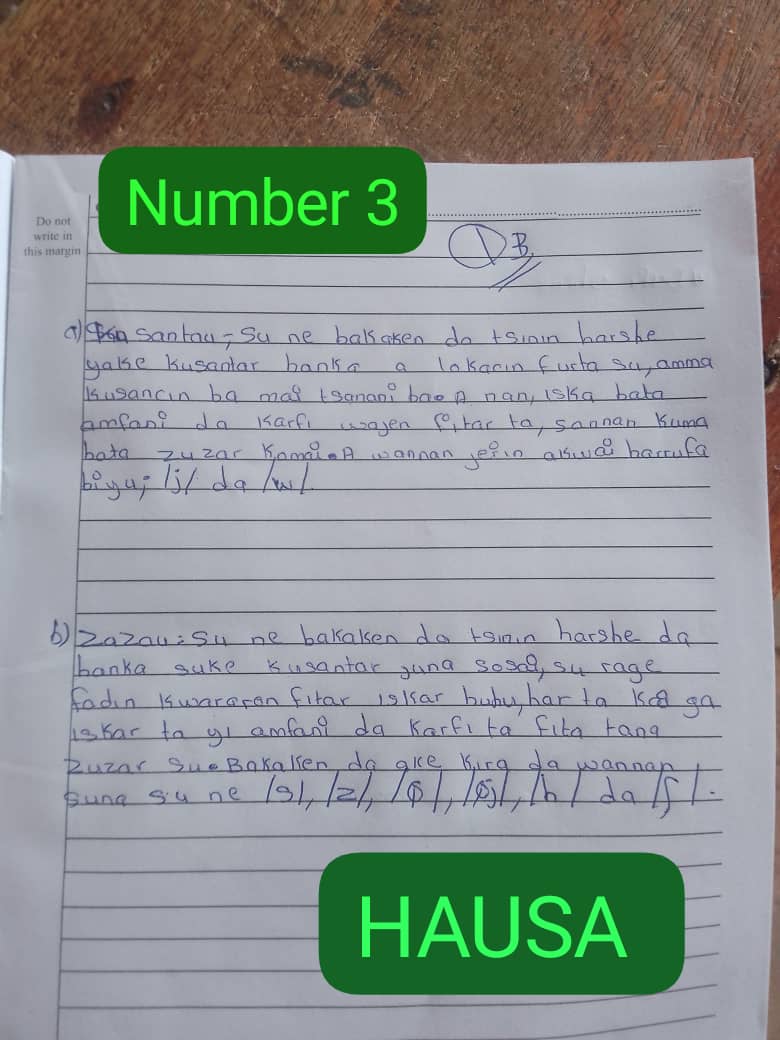 Number 3
Do not
write in
this margin
1 B.
a) Santau;- Su ne bakaken da tsinin harshe
yake kusantar hanka a lokacin furta su, amma
kusancin ba mai tsanani bane A nan, iska bata
amfani da karfi wajen fitar ta, sannan kuma
bata zuzar Komai. A wannan jerin akwai harrufa
biyu; /j/ da /w/.
b) Zazau: Su ne bakaken da tsinin harshe da
hanka suke kusantar juna sosai, su rage
fadin kwararon fitar iskar huhu, har ta kai ga
iskar ta yi amfani da karfi ta fita tana
zuzar su. Bakaken da ake kira da wannan
suna su ne /s/, /z/, /ɸ/, /ɸj/, /h/ da /ʃ/.
HAUSA